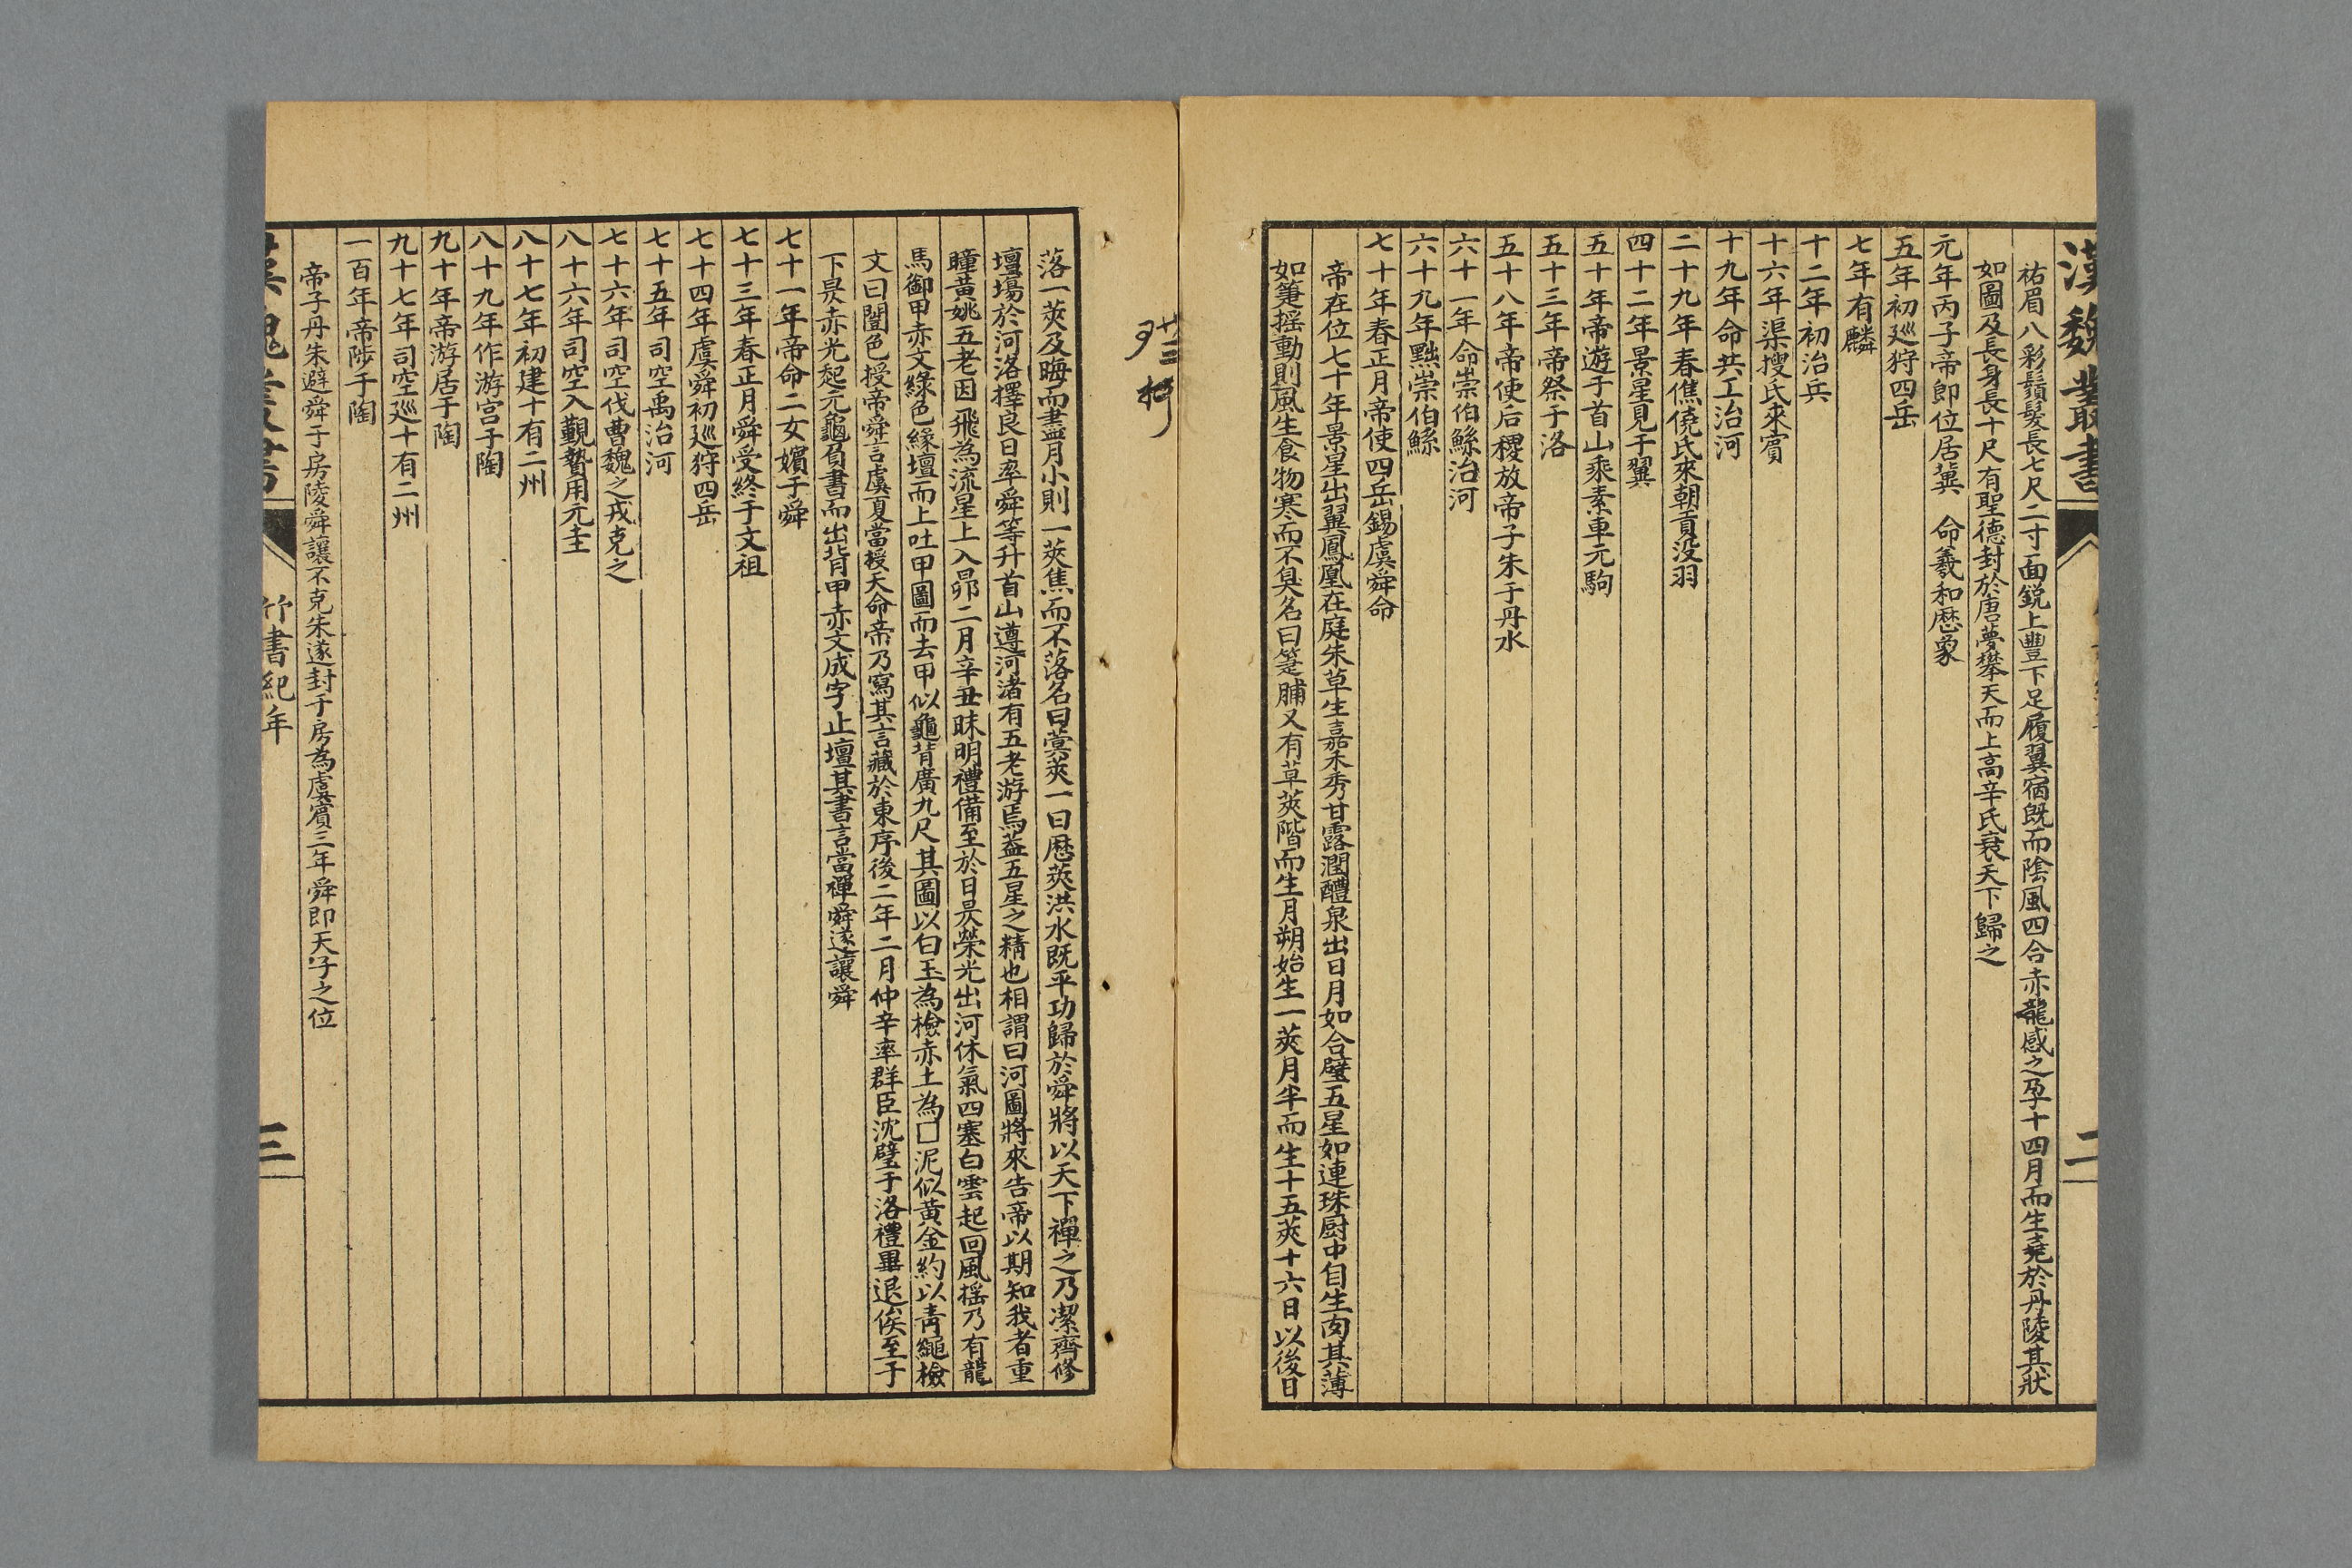 漢魏叢書
二
祐眉八彩鬚髮長七尺二寸面銳上豐下足履翼宿旣而陰風四合赤龍感之孕十四月而生堯於丹陵其狀
如圖及長身長十尺有聖德封於唐夢攀天而上高辛氏衰天下歸之
元年丙子帝卽位居冀 命羲和厯象
五年初廵狩四岳
七年有麟
十二年初治兵
十六年渠搜氏來賓
十九年命共工治河
二十九年春僬僥氏來朝貢沒羽
四十二年景星見于翼
五十年帝遊于首山乘素車元駒
五十三年帝祭于洛
五十八年帝使后稷放帝子朱于丹水
六十一年命崇伯鯀治河
六十九年黜崇伯鯀
七十年春正月帝使四岳錫虞舜命
帝在位七十年景星出翼鳳凰在庭朱草生嘉禾秀甘露潤醴泉出日月如合璧五星如連珠厨中自生肉其薄
如箑摇動則風生食物寒而不臭名曰箑脯又有草莢階而生月朔始生一莢月半而生十五莢十六日以後日
落一莢及晦而盡月小則一莢焦而不落名曰蓂莢一曰厯莢洪水旣平功歸於舜將以天下禪之乃潔齊修
壇場於河洛擇良日率舜等升首山遵河渚有五老游焉葢五星之精也相謂曰河圖將來告帝以期知我者重
瞳黃姚五老因飛為流星上入昴二月辛丑昧明禮備至於日昃榮光出河休氣四塞白雲起回風摇乃有龍
馬銜甲赤文綠色緣壇而上吐甲圖而去甲似龜背廣九尺其圖以白玉為檢赤土為□泥似黃金約以青繩檢
文曰闓色授帝舜言虞夏當授天命帝乃寫其言藏於東序後二年二月仲辛率群臣沈璧于洛禮畢退俟至于
下昃赤光起元龜負書而出背甲赤文成字止壇其書言當禪舜遂讓舜
七十一年帝命二女嬪于舜
七十三年春正月舜受終于文祖
七十四年虞舜初廵狩四岳
七十五年司空禹治河
七十六年司空伐曹魏之戎克之
八十六年司空入覲贄用元圭
八十七年初建十有二州
八十九年作游宫于陶
九十年帝游居于陶
九十七年司空廵十有二州
一百年帝陟于陶
帝子丹朱避舜于房陵舜讓不克朱遂封于房為虞賓三年舜卽天子之位
漢魏叢書
竹書紀年
三